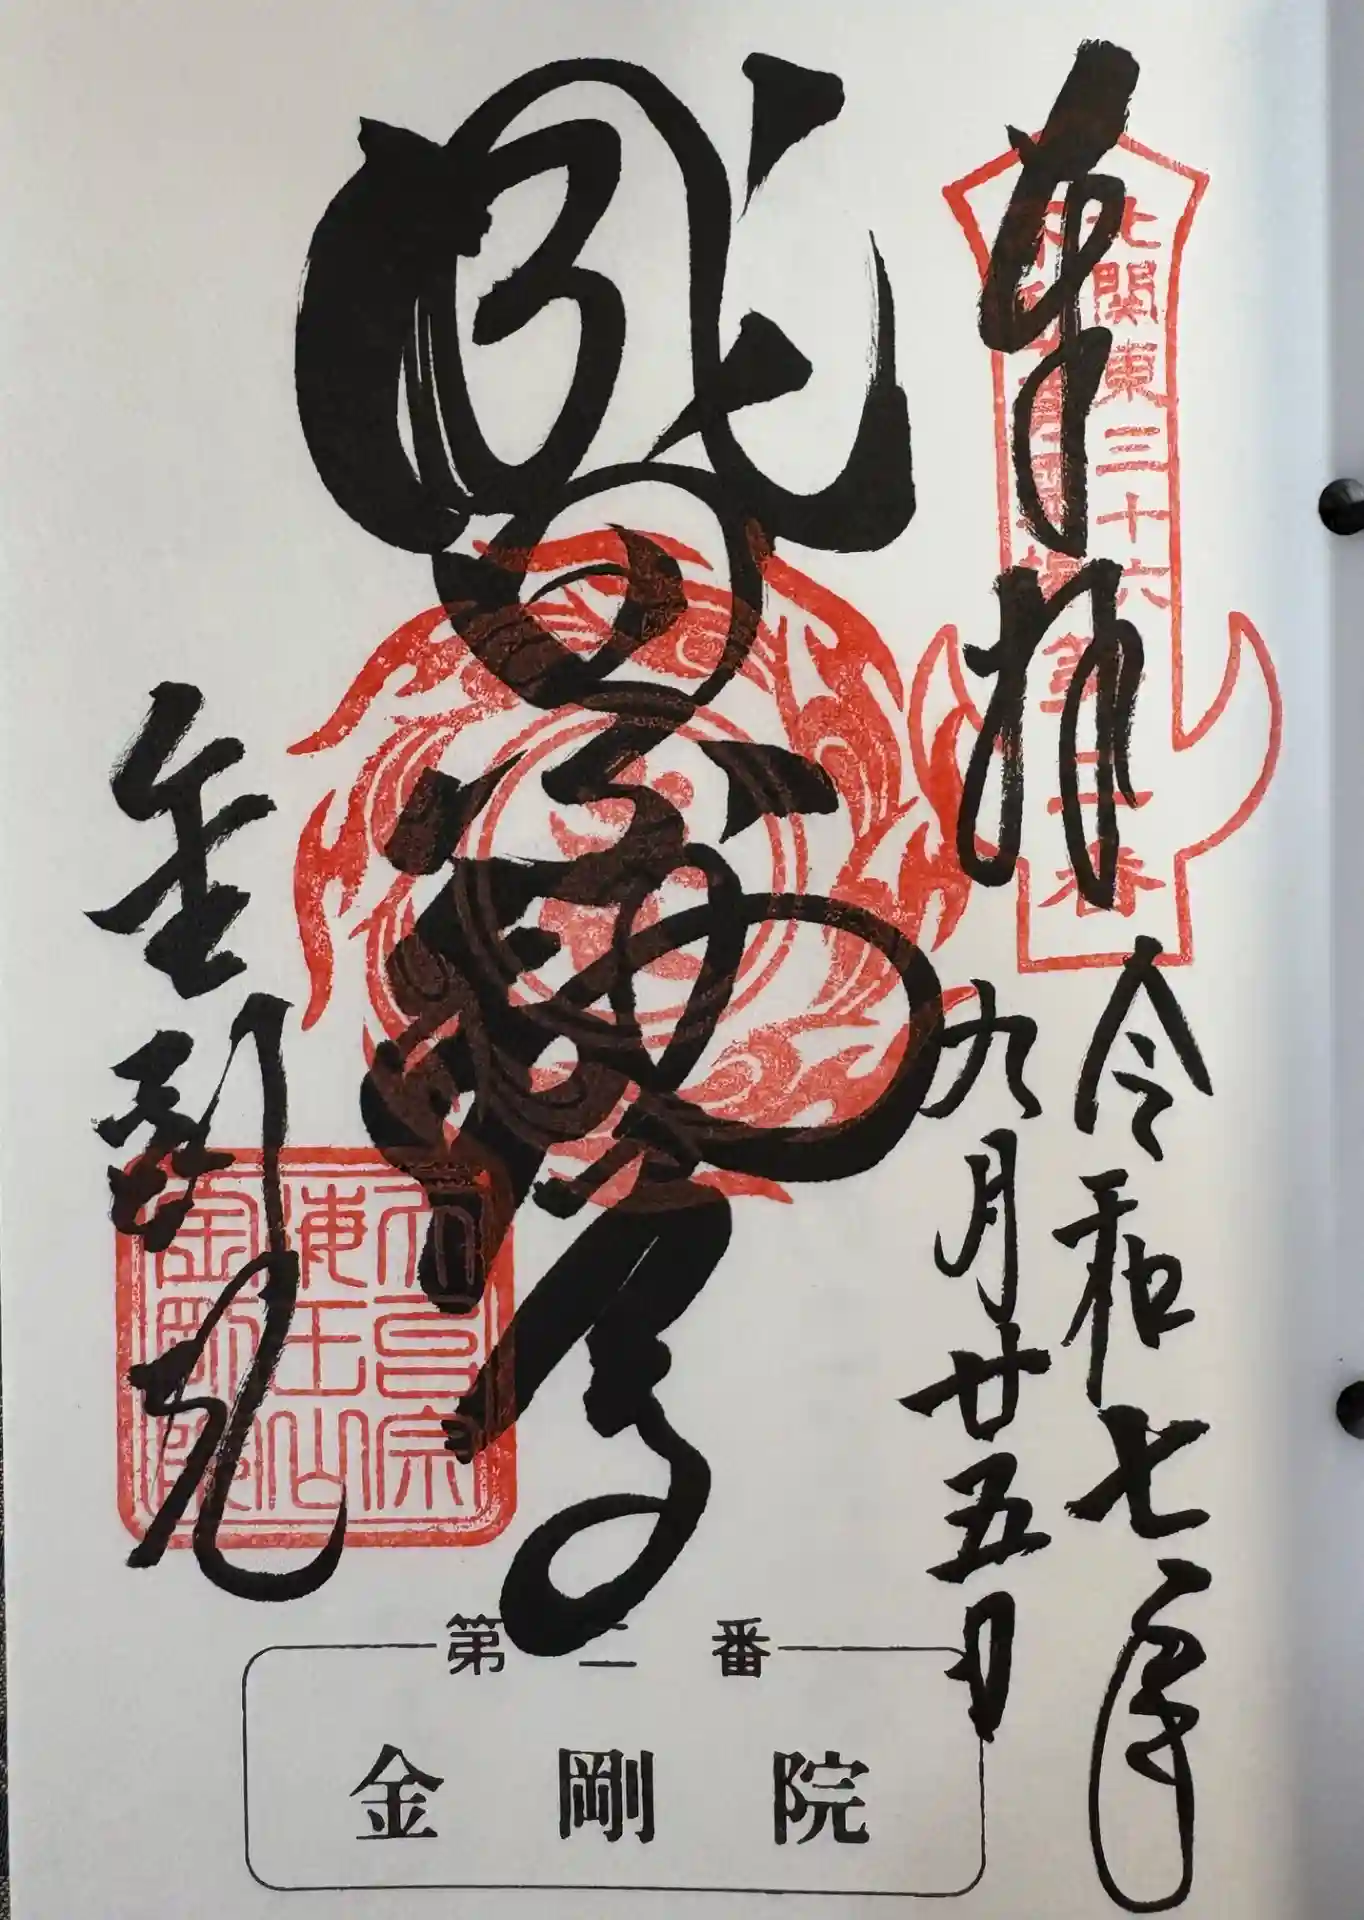 奉拝
北関東三十六
不動尊霊場
第二番
令和七年
九月廿五日
天台宗
海王山
金剛院
金剛院
第二番
金剛院